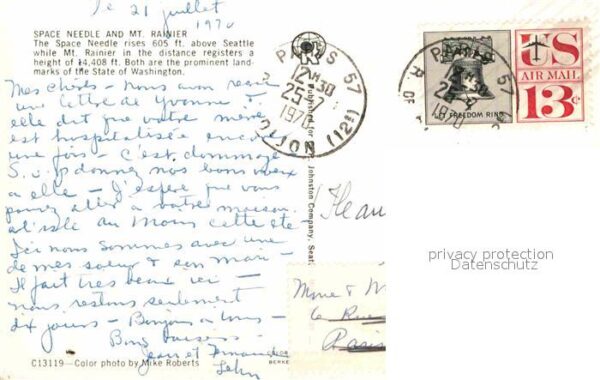 le 21 juillet
1970
SPACE NEEDLE AND MT. RAINIER
The Space Needle rises 605 ft. above Seattle
while Mt. Rainier in the distance registers a
height of 14,408 ft. Both are the prominent land-
marks of the State of Washington.
Mes chers - nous avons reçu
une lettre de Yvonne &
elle dit que votre mère
est hospitalisée encore
une fois - C'est dommage
S.v.p donnez nos bons voeux
a elle - J'espère que vous
pouvez aller a votre maison
a l'isle au Moins cette été -
Ici nous sommes avec une
de mes soeurs & son mari -
Il fait tres beau ici -
nous restons seulement
dix jours - Bonjour a tous -
Bons baisers -
Jean et
John
C13119—Color photo by Mike Roberts
BERKE
Published for Johnston Company, Seat
PARIS 57
12H30
25-7
1970
(12e)
PARIS 57
25-7
1970
R. DE
FREEDOM RING
US
AIR MAIL
13c
Mme & M
6 Rue
Paris
privacy protection
Datenschutz